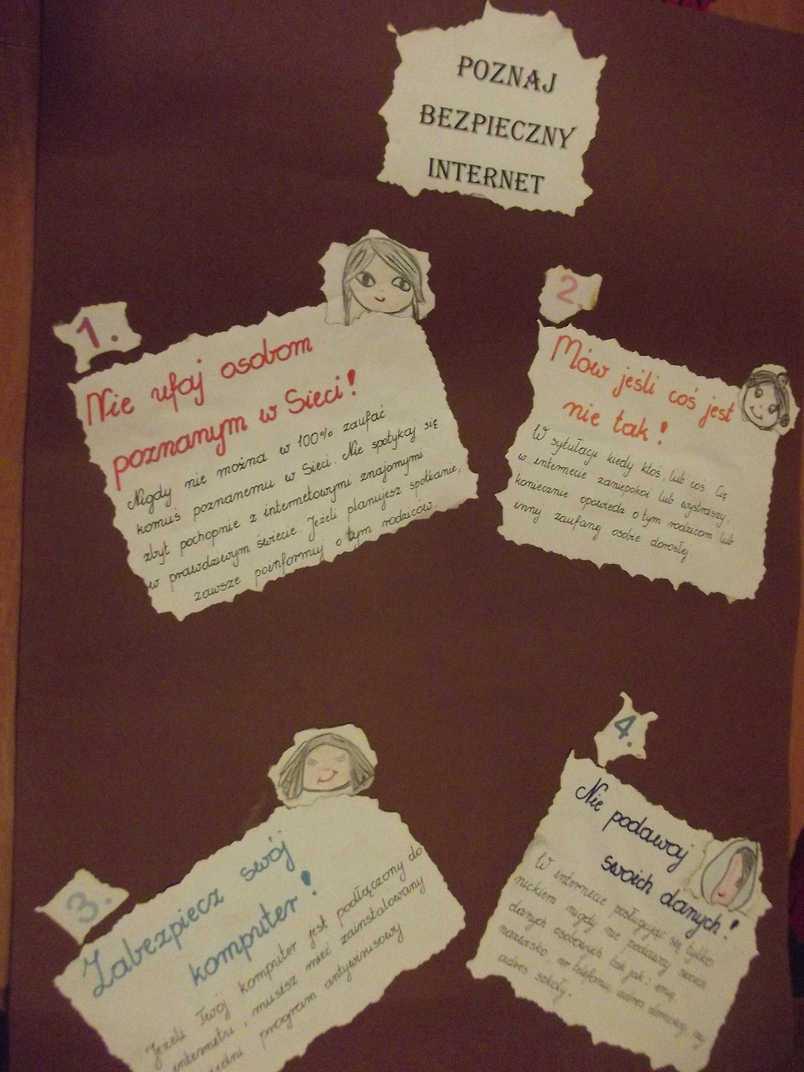 POZNAJ
BEZPIECZNY
INTERNET
1.
Nie ufaj osobom
poznanym w Sieci!
Nigdy nie można w 100% zaufać
komuś poznanemu w Sieci. Nie spotykaj się
zbyt pochopnie z internetowymi znajomymi
w prawdziwym świecie. Jeżeli planujesz spotkanie,
zawsze poinformuj o tym rodziców.
2
Mów jeśli coś jest
nie tak!
W sytulacji kiedy ktoś lub coś Cię
w internecie zaniepokoi lub wystraszy,
koniecznie opowiedz o tym rodzicom lub
inny zaufaną osobie dorosłej
3.
Zabezpiecz swój
komputer!
Jeżeli Twój komputer jest podłączony do
internetu, musisz mieć zainstalowany
program antywirusowy
4.
Nie podawaj
swoich danych!
W internecie posługuj się tylko
nickiem nigdy nie podawaj swoich
danych osobowych tak jak: imię,
nazwisko, nr telefonu, adres domowy, czy
adres szkoły.